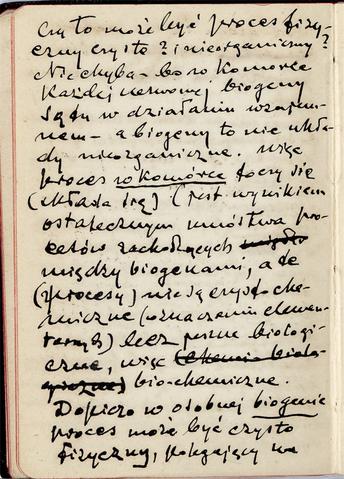 Czy to może być proces fizy-
czny czysto? i nieorganiczny?
Nie chyba – bo w komórce
każdej nerwowej biogeny
są w działaniu wzajem-
nem – a biogeny to nie ukła-
dy nieorganiczne. Więc
proces w komórce toczy się
(składa się) (jest wynikiem
ostatecznym mnóstwa pro-
cesów zachodzących
między biogenami, a te
(procesy) nie są czysto che-
miczne (oznaczanie elemen-
tarnych) lecz pewne biologi-
czne, więc (chemio biolo-
giczne) bio-chemiczne.
Dopiero w osobnej biogenie
proces może być czysto
fizyczny, polegający na